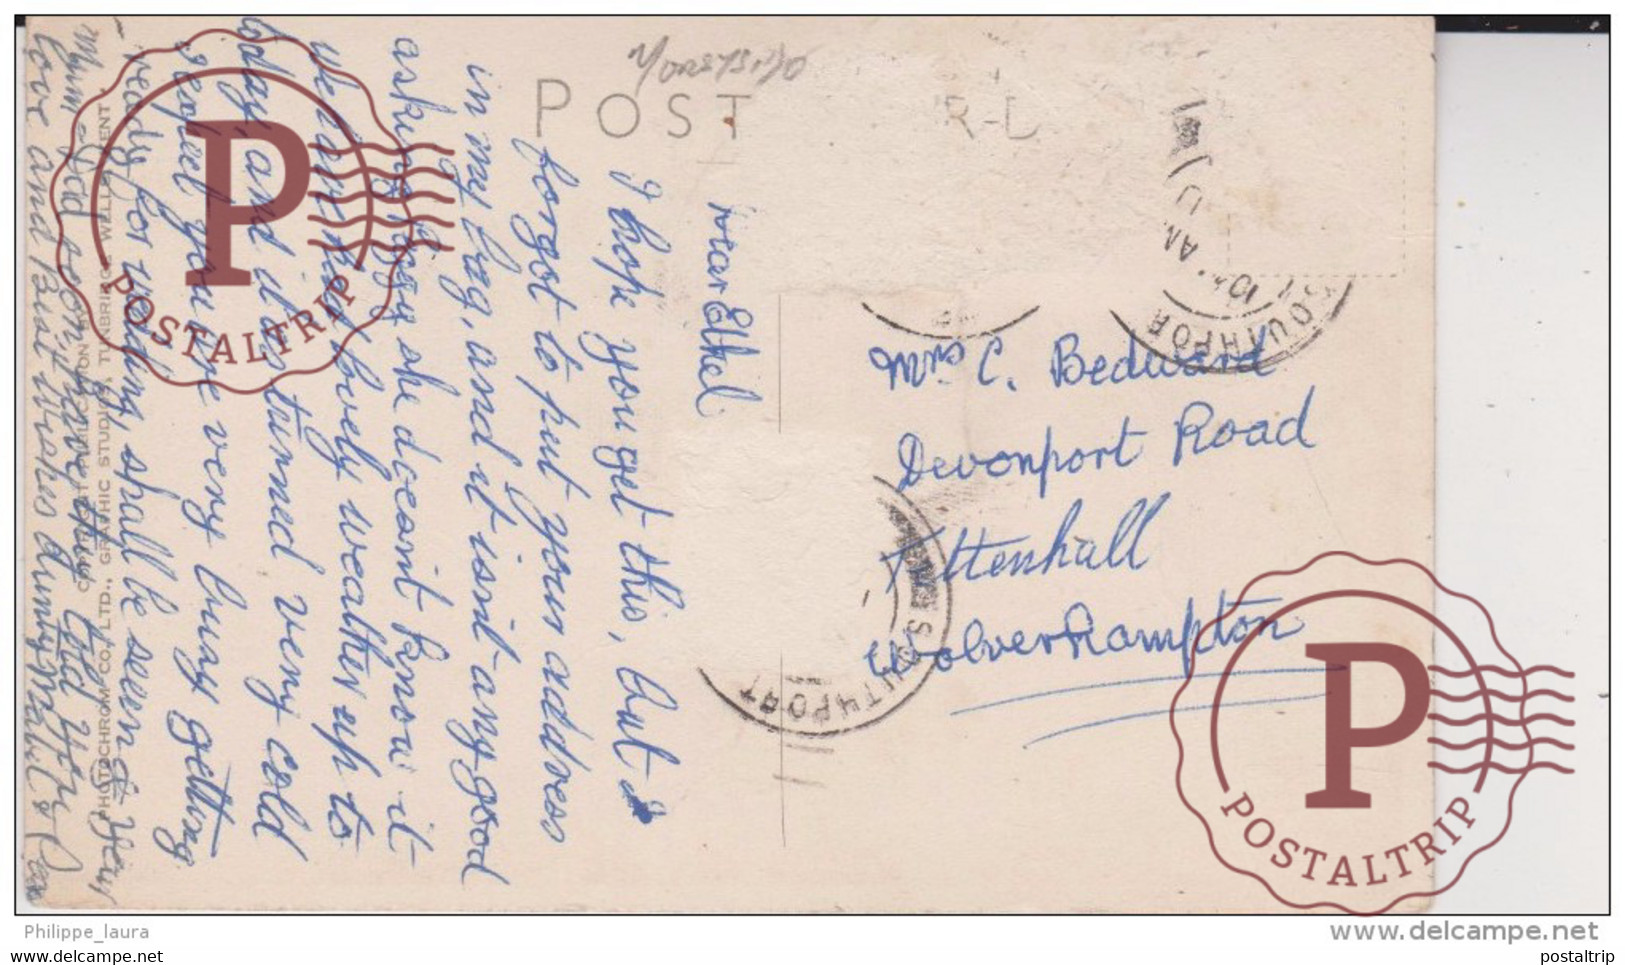 POST CARD
Dear Ethel
I hope you get this, but I
forgot to put your address
in my bag, and it isn't any good
asking Peggy she doesn't know it
We have had lovely weather up to
today, and it as turned very cold
I expect you are very busy getting
ready for wedding, shall be seeing your
Mum & Dad soon
love and Best Wishes
Mrs C. Bedward
Devonport Road
Tettenhall
Wolverhampton
SOUTHPORT
SOUTHPORT
PHOTOCHROM CO., LTD., GRAPHIC STUDIOS, TUNBRIDGE WELLS, KENT
P
POSTALTRIP
P
POSTALTRIP
Philippe_laura
www.delcampe.net
www.delcampe.net
postaltrip